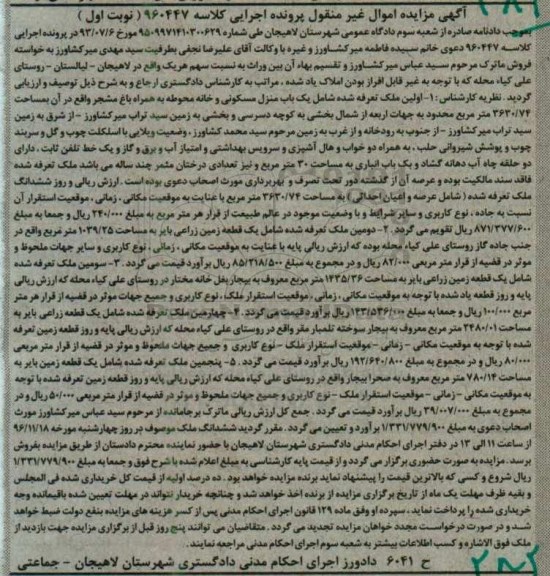 آگهی مزایده اموال غیر منقول پرونده اجرایی کلاسه ۹۶۰۴۴۷ ( نوبت اول )
بموجب دادنامه صادره از شعبه سوم دادگاه عمومی شهرستان لاهیجان طی شماره ۹۵۰۹۹۷۱۴۱۰۳۰۰۶۲۹ مورخ ۹۳/۰۷/۶ در پرونده اجرایی
کلاسه ۹۶۰۴۴۷ دعوی خانم سیده فاطمه میرکشاورز و غیره با وکالت آقای علیرضا نجفی بطرفیت سید مهدی میرکشاورز به خواسته
فروش ماترک مرحوم سید عباس میرکشاورز و تقسیم بهاء آن بین وراث به نسبت سهم هریک واقع در لاهیجان - لیالستان - روستای
علی کیاه محله که با توجه به غیر قابل افراز بودن املاک یاد شده ، مراتب به کارشناس دادگستری ارجاع و به شرح ذیل توصیف و ارزیابی
گردید . نظریه کارشناس : ۱- اولین ملک تعرفه شده شامل یک باب منزل مسکونی و خانه محوطه به همراه باغ مشجر واقع در آن بمساحت
۳۶۳۰/۷۴ متر مربع محدود به جهات اربعه از شمال بخشی به کوچه دسرسی و بخشی به زمین سید تراب میرکشاورز - از شرق به زمین
سید تراب میرکشاورز - از جنوب به رودخانه و از غرب به زمین مرحوم سید محمد کشاورز ، وضعیت ویلایی با اسکلت چوب و گل و سربند
چوب و پوشش شیروانی حلب ، به همراه دو خواب و هال آشپزی و سرویس بهداشتی و امتیاز آب و برق و گاز و یک خط تلفن ثابت ، دارای
دو حلقه چاه آب دهانه گشاد و یک باب انباری به مساحت ۳۰ متر مربع و نیز تعدادی درختان مثمر چند ساله می باشد ملک تعرفه شده
فاقد سند مالکیت بوده و عرصه آن از گذشته دور تحت تصرف و بهربرداری مورث اصحاب دعوی بوده است . ارزش ریالی و روز ششدانگ
ملک تعرفه شده ( شامل عرصه و اعیان احداثی ) به مساحت ۳۶۳۰/۷۴ متر مربع با عنایت به موقعیت مکانی ، زمانی ، موقعیت استقرار آن
نسبت به جاده ، نوع کاربری و سایر شرایط و با وضعیت موجود در عالم طبیعت از قرار هر متر مربع به مبلغ ۲۴۰/۰۰۰ ریال و جمعا به مبلغ
۸۷۱/۳۷۷/۶۰۰ ریال تقویم می گردد . ۲- دومین ملک تعرفه شده شامل یک قطعه زمین زراعی بایر به مساحت ۱۰۳۹/۲۵ متر مربع واقع در
جنب جاده گاز روستای علی کیاه محله بوده که ارزش ریالی پایه با عنایت به موقعیت مکانی ، زمانی ، نوع کاربری و سایر جهات ملحوظ و
موثر در قضیه از قرار متر مربعی ۸۲/۰۰۰ ریال و در مجموع به مبلغ ۸۵/۲۱۸/۵۰۰ ریال برآورد قیمت می گردد . ۳- سومین ملک تعرفه شده
شامل یک قطعه زمین زراعی بایر به مساحت ۱۴۳۵/۳۶ متر مربع معروف به بیجار بغل خانه مختار در روستای علی کیاه محله که ارزش ریالی
پایه و روز قطعه یاد شده با توجه به موقعیت مکانی ، زمانی ، موقعیت استقرار ملک ، نوع کاربری و جمیع جهات موثر در قضیه از قرار هر متر
مربع ۱۰۰/۰۰۰ ریال و جمعا به مبلغ ۱۴۳/۵۳۶/۰۰۰ ریال برآورد قیمت می گردد . ۴- چهارمین ملک تعرفه شده شامل یک قطعه زراعی بایر به
مساحت ۲۴۸۰/۰۱ متر مربع معروف به بیجار سوخته تلمبار مقر واقع در روستای علی کیاه محله که ارزش ریالی پایه و روز قطعه زمین تعرفه
شده با توجه به موقعیت مکانی - زمانی - موقعیت استقرار ملک - نوع کاربری و جمیع جهات ملحوظ و موثر در قضیه از قرار متر مربعی
۸۰/۰۰۰ ریال و در مجموع به مبلغ ۱۹۲/۶۴۰/۸۰۰ ریال برآورد قیمت می گردد . ۵- پنجمین ملک تعرفه شده شامل یک قطعه زمین بایر به
مساحت ۷۸۰/۱۴ متر مربع معروف به صحرا بیجار واقع در روستای علی کیاه محله که ارزش ریالی پایه و روز قطعه زمین تعرفه شده با توجه
به موقعیت مکانی - زمانی - موقعیت استقرار ملک - نوع کاربری و جمیع جهات ملحوظ و موثر در قضیه از قرار متر مربعی ۵۰/۰۰۰ ریال و در
مجموع به مبلغ ۳۹/۰۰۷/۰۰۰ ریال برآورد قیمت می گردد . جمع کل ارزش ریالی ماترک برجامانده از مرحوم سید عباس میرکشاورز مورث
اصحاب دعوی به مبلغ ۱/۳۳۱/۷۷۹/۹۰۰ برآورد و تعیین می گردد . مقرر گردید ششدانگ ملک موصوف در روز چهارشنبه مورخه ۹۶/۱۱/۱۸
از ساعت ۱۱ الی ۱۳ در دفتر اجرای احکام مدنی دادگستری شهرستان لاهیجان با حضور نماینده محترم دادستان از طریق مزایده بفروش
برسد . مزایده به صورت حضوری برگزار می گردد و از قیمت پایه کارشناسی به مبلغ اعلام شده با شرح فوق و جمعا به مبلغ ۱/۳۳۱/۷۷۹/۹۰۰
ریال شروع و کسی که بالاترین قیمت را پیشنهاد نماید برنده مزایده خواهد بود . ده درصد اولیه از قیمت کل خریداری شده فی المجلس
و بقیه ظرف مهلت یک ماه از تاریخ برگزاری مزایده از برنده اخذ خواهد شد و چنانچه خریدار نتواند در مهلت تعیین شده باقیمانده وجه
خریداری شده را پرداخت نماید ، سپرده او وفق ماده ۱۲۹ قانون اجرای احکام مدنی پس از کسر هزینه های مزایده بنفع دولت ضبط خواهد
شد و در صورت درخواست مجدد خواهان مزایده تجدید می گردد . متقاضیان می توانند پنج روز قبل از برگزاری مزایده جهت بازدید از
ملک فوق الاشاره و کسب اطلاعات بیشتر به شعبه سوم اجرای احکام مدنی مراجعه نمایند .
ح ۶۰۴۱ دادورز اجرای احکام مدنی دادگستری شهرستان لاهیجان - جماعتی